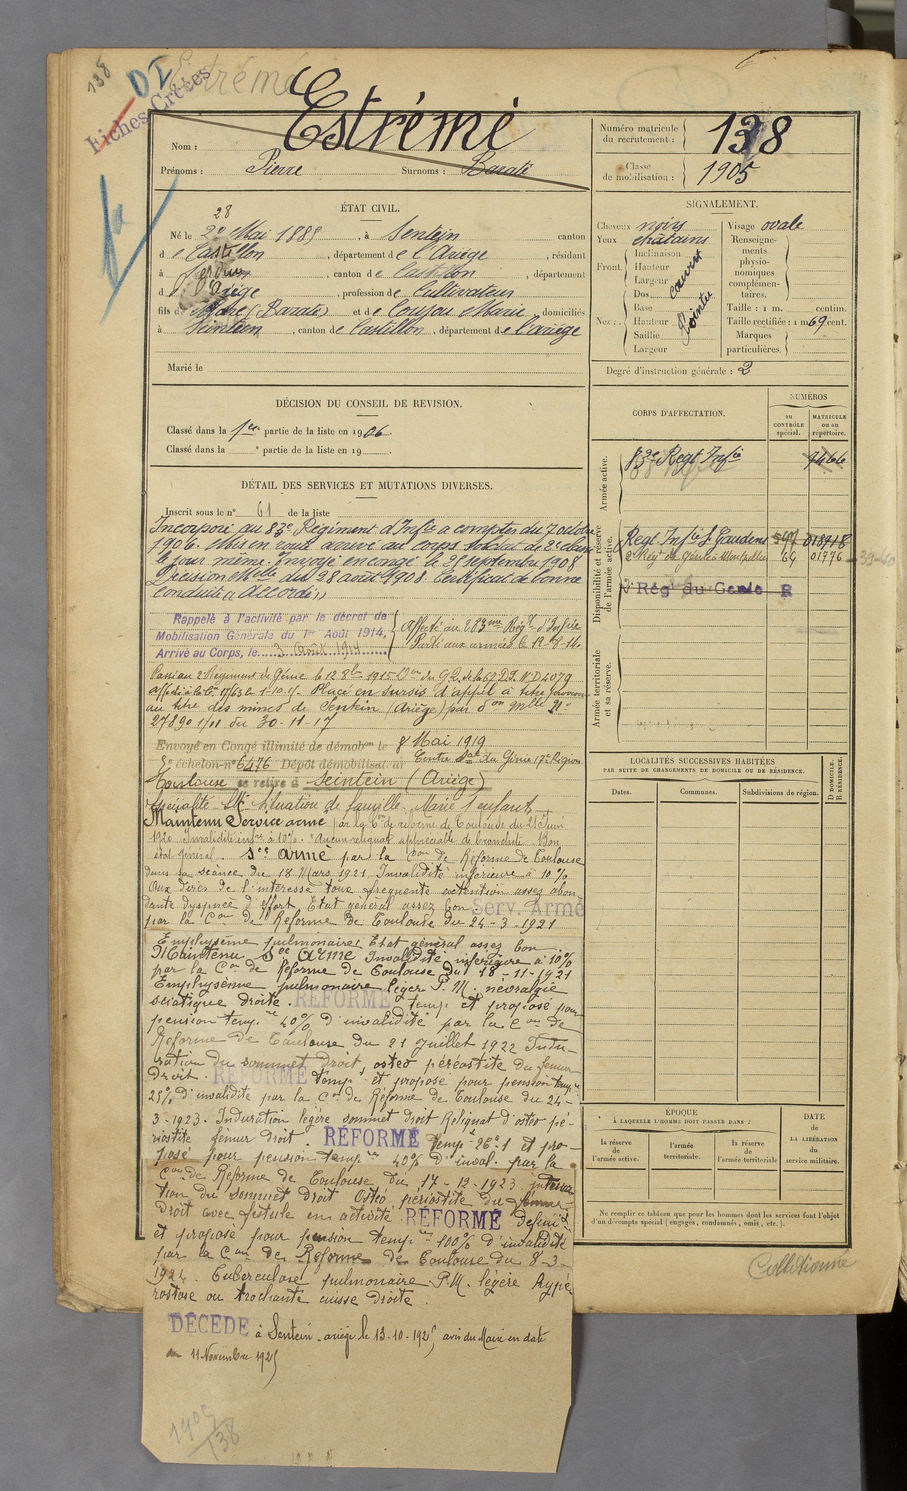 138
DI
Estrémé
Fiches Créées
Nom :
Estrémé
Prénoms : Pierre Surnoms : Baraté
Numéro matricule du recrutement : 138
Classe de mobilisation : 1905
ÉTAT CIVIL.
28
Né le Mai 1885, à Sentein canton
de Castillon, département de l'Ariège, résidant
à, canton de Castillon, département
d, profession de Cultivateur
fils d (Baraté) et de Marie, domiciliés
à Seintein, canton de Castillon, département de l'Ariège
Marié le
SIGNALEMENT.
Cheveux noirs
Yeux chatains
Front
Inclinaison
Hauteur
Largeur
Nez :
Dos
Base
Hauteur
Saillie
Largeur
Visage ovale
Renseignements physionomiques complémentaires.
Taille : 1 m. centim.
Taille rectifiée : 1 m 69 cent.
Marques particulières.
Degré d'instruction générale : 2
DÉCISION DU CONSEIL DE REVISION.
Classé dans la 1re partie de la liste en 1906
Classé dans la e partie de la liste en 19
CORPS D'AFFECTATION.
NUMÉROS
DU CONTRÔLE spécial.
MATRICULE ou au répertoire.
Armée active.
83e Regt Infie 7466
Disponibilité et réserve de l'armée active.
Regt Infie St Gaudens 018718
2e Reg du Génie Montpellier 64 01776
2e Rég du Genie R
Armée territoriale et sa réserve.
DÉTAIL DES SERVICES ET MUTATIONS DIVERSES.
Inscrit sous le n° 61 de la liste
Incorporé au 83e Régiment d'Infie a compter du 7 octobre
1906. Mis en route arrivé au corps soldat de 2e classe
le jour même. Envoyé en congé le 25 septembre 1908
Décision Mlle du 28 août 1908. Certificat de bonne
conduite « Accordé »
Rappelé à l'activité par le décret de
Mobilisation Générale du 1er Août 1914,
Arrivé au Corps, le 3 Août 1914
Affecté au 283me Régt d'Infie
Parti aux armées le 12-8-14
Passé au 2e Régiment du Génie le 12 8bre 1915 ND4079
Placé en sursis d'appel à titre
au titre des mines de Sentein (Ariège) par Don Mlle
27890 1/11 du 30-11-17
Envoyé en Congé illimité de démobon le 8 Mai 1919
3e échelon n° 6476 Dépôt démobilisateur Centre du Génie 17e Région
Toulouse se retire à Seintein (Ariège)
Spécialité Situation de famille. Marié 1 enfant
Maintenu Service armé par la Con de réforme de Toulouse du 21 Juin
1920 Invalidité infre à 10%. Aucun reliquat appréciable de bronchite. Bon
état général. Sce armé par la Con de Réforme de Toulouse
dans sa séance du 18 Mars 1921 Invalidité inférieure à 10%
Aux dires de l'intéressé toux fréquente
dyspnée d'effort. Etat général assez bon Serv. Armé
par la Con de Réforme de Toulouse du 24-3-1921
Emphysème pulmonaire. Etat général assez bon
Maintenu Sce armé Invalidité inférieure à 10%
par la Con de Réforme de Toulouse du 18-11-1921
Emphysème pulmonaire léger P.M. névralgie
sciatique droite. RÉFORMÉ temp. et proposé pour
pension tempre 40% d'invalidité par la Con de
Réforme de Toulouse du 21 Juillet 1922 Indu-
ration du sommet droit, osteo périostite du femur
droit. RÉFORMÉ temp. et proposé pour pension tempre
25% d'invalidité par la Con de Réforme de Toulouse du 24-
3-1923. Induration légère sommet droit Reliquat d'osteo pé-
riostite fémur droit. RÉFORMÉ temp et pro-
posé pour pension tempre 40% d'inval. par la
Con de Réforme de Toulouse du 17-12-1923
du sommet droit Osteo périostite du fémur
droit avec fistule en activité RÉFORMÉ
et proposé pour pension tempre 100% d'invalidité
par la Con de Réforme de Toulouse du 8-3-
1924. Tuberculose pulmonaire P.M. légère
ou trochante cuisse droite.
DÉCÉDÉ à Sentein ariège le 13-10-1925 avis du Maire en date
du 11 Novembre 1925
1905
138
LOCALITÉS SUCCESSIVES HABITÉES
PAR SUITE DE CHANGEMENTS DE DOMICILE OU DE RÉSIDENCE.
Dates. Communes. Subdivisions de région.
D DOMICILE. R RÉSIDENCE.
ÉPOQUE
À LAQUELLE L'HOMME DOIT PASSER DANS :
la réserve de l'armée active.
l'armée territoriale.
la réserve de l'armée territoriale
DATE de LA LIBÉRATION du service militaire.
Ne remplir ce tableau que pour les hommes dont les services font l'objet
d'un décompte spécial (engagés, condamnés, omis, etc.).
Collationné